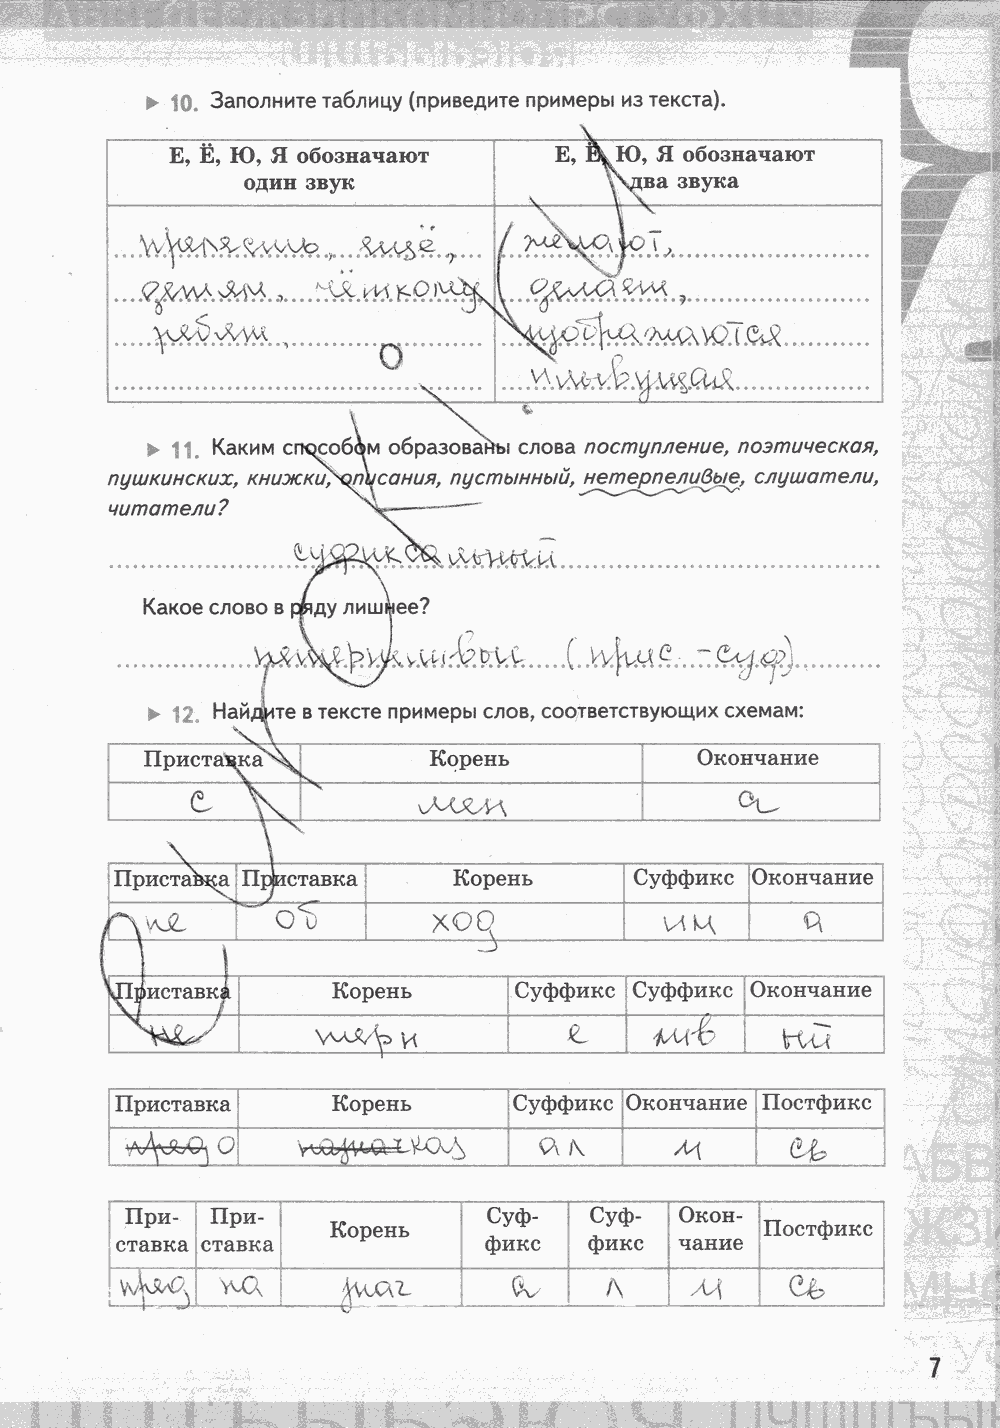 10. Заполните таблицу (приведите примеры из текста).
Е, Ё, Ю, Я обозначают один звук
Е, Ё, Ю, Я обозначают два звука
прелесть, ещё,
детям, чёткому
ребят,
желают,
делает,
изображаются
плывущая
11. Каким способом образованы слова поступление, поэтическая,
пушкинских, книжки, описания, пустынный, нетерпеливые, слушатели,
читатели?
суфиксальный
Какое слово в ряду лишнее?
нетерпеливые (прис.-суф)
12. Найдите в тексте примеры слов, соответствующих схемам:
Приставка Корень Окончание
с мен а
Приставка Приставка Корень Суффикс Окончание
не об ход им а
Приставка Корень Суффикс Суффикс Окончание
не терп е лив ый
Приставка Корень Суффикс Окончание Постфикс
пред о назнач каз ал и сь
При-ставка При-ставка Корень Суф-фикс Суф-фикс Окон-чание Постфикс
пред на знач а л и сь
7